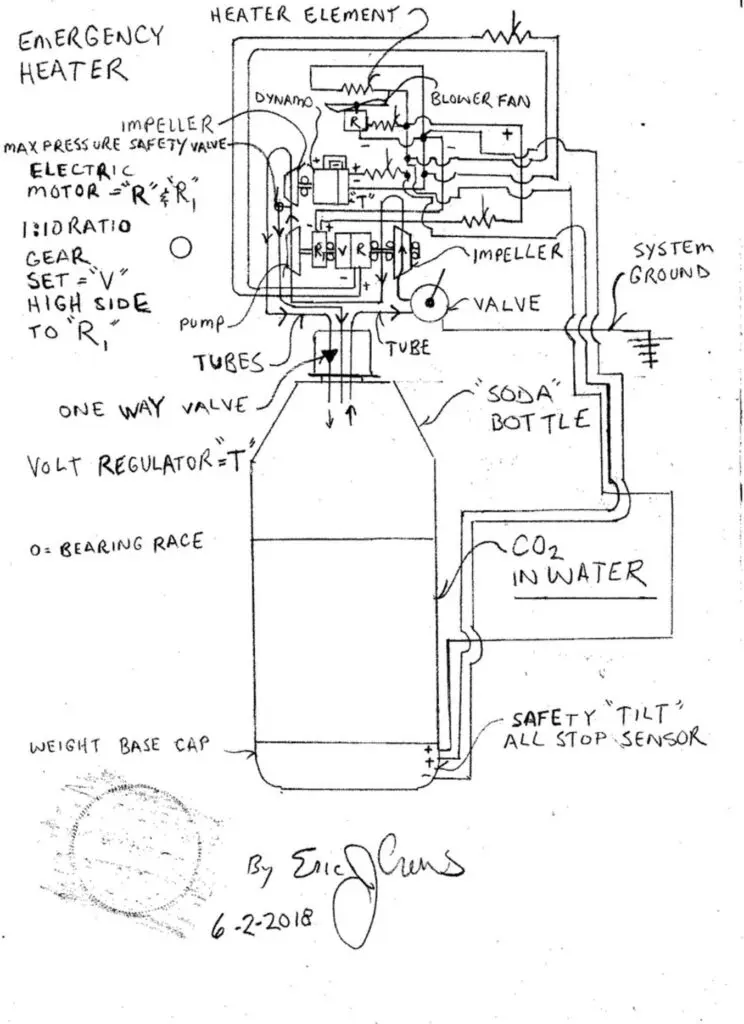 EMERGENCY
HEATER
HEATER ELEMENT
DYNAMO
BLOWER FAN
R
+
-
IMPELLER
MAX PRESSURE SAFETY VALVE
ELECTRIC
MOTOR = "R" & "R1"
+
-
+
-
"T"
1:10 RATIO
GEAR
SET = "V"
HIGH SIDE
TO "R1"
- +
R1 V R
- +
PUMP
IMPELLER
VALVE
SYSTEM
GROUND
TUBES
TUBE
ONE WAY VALVE
"SODA"
BOTTLE
VOLT REGULATOR = "T"
O = BEARING RACE
CO2
IN WATER
WEIGHT BASE CAP
+
+
-
SAFETY "TILT"
ALL STOP SENSOR
By Eric J
6-2-2018